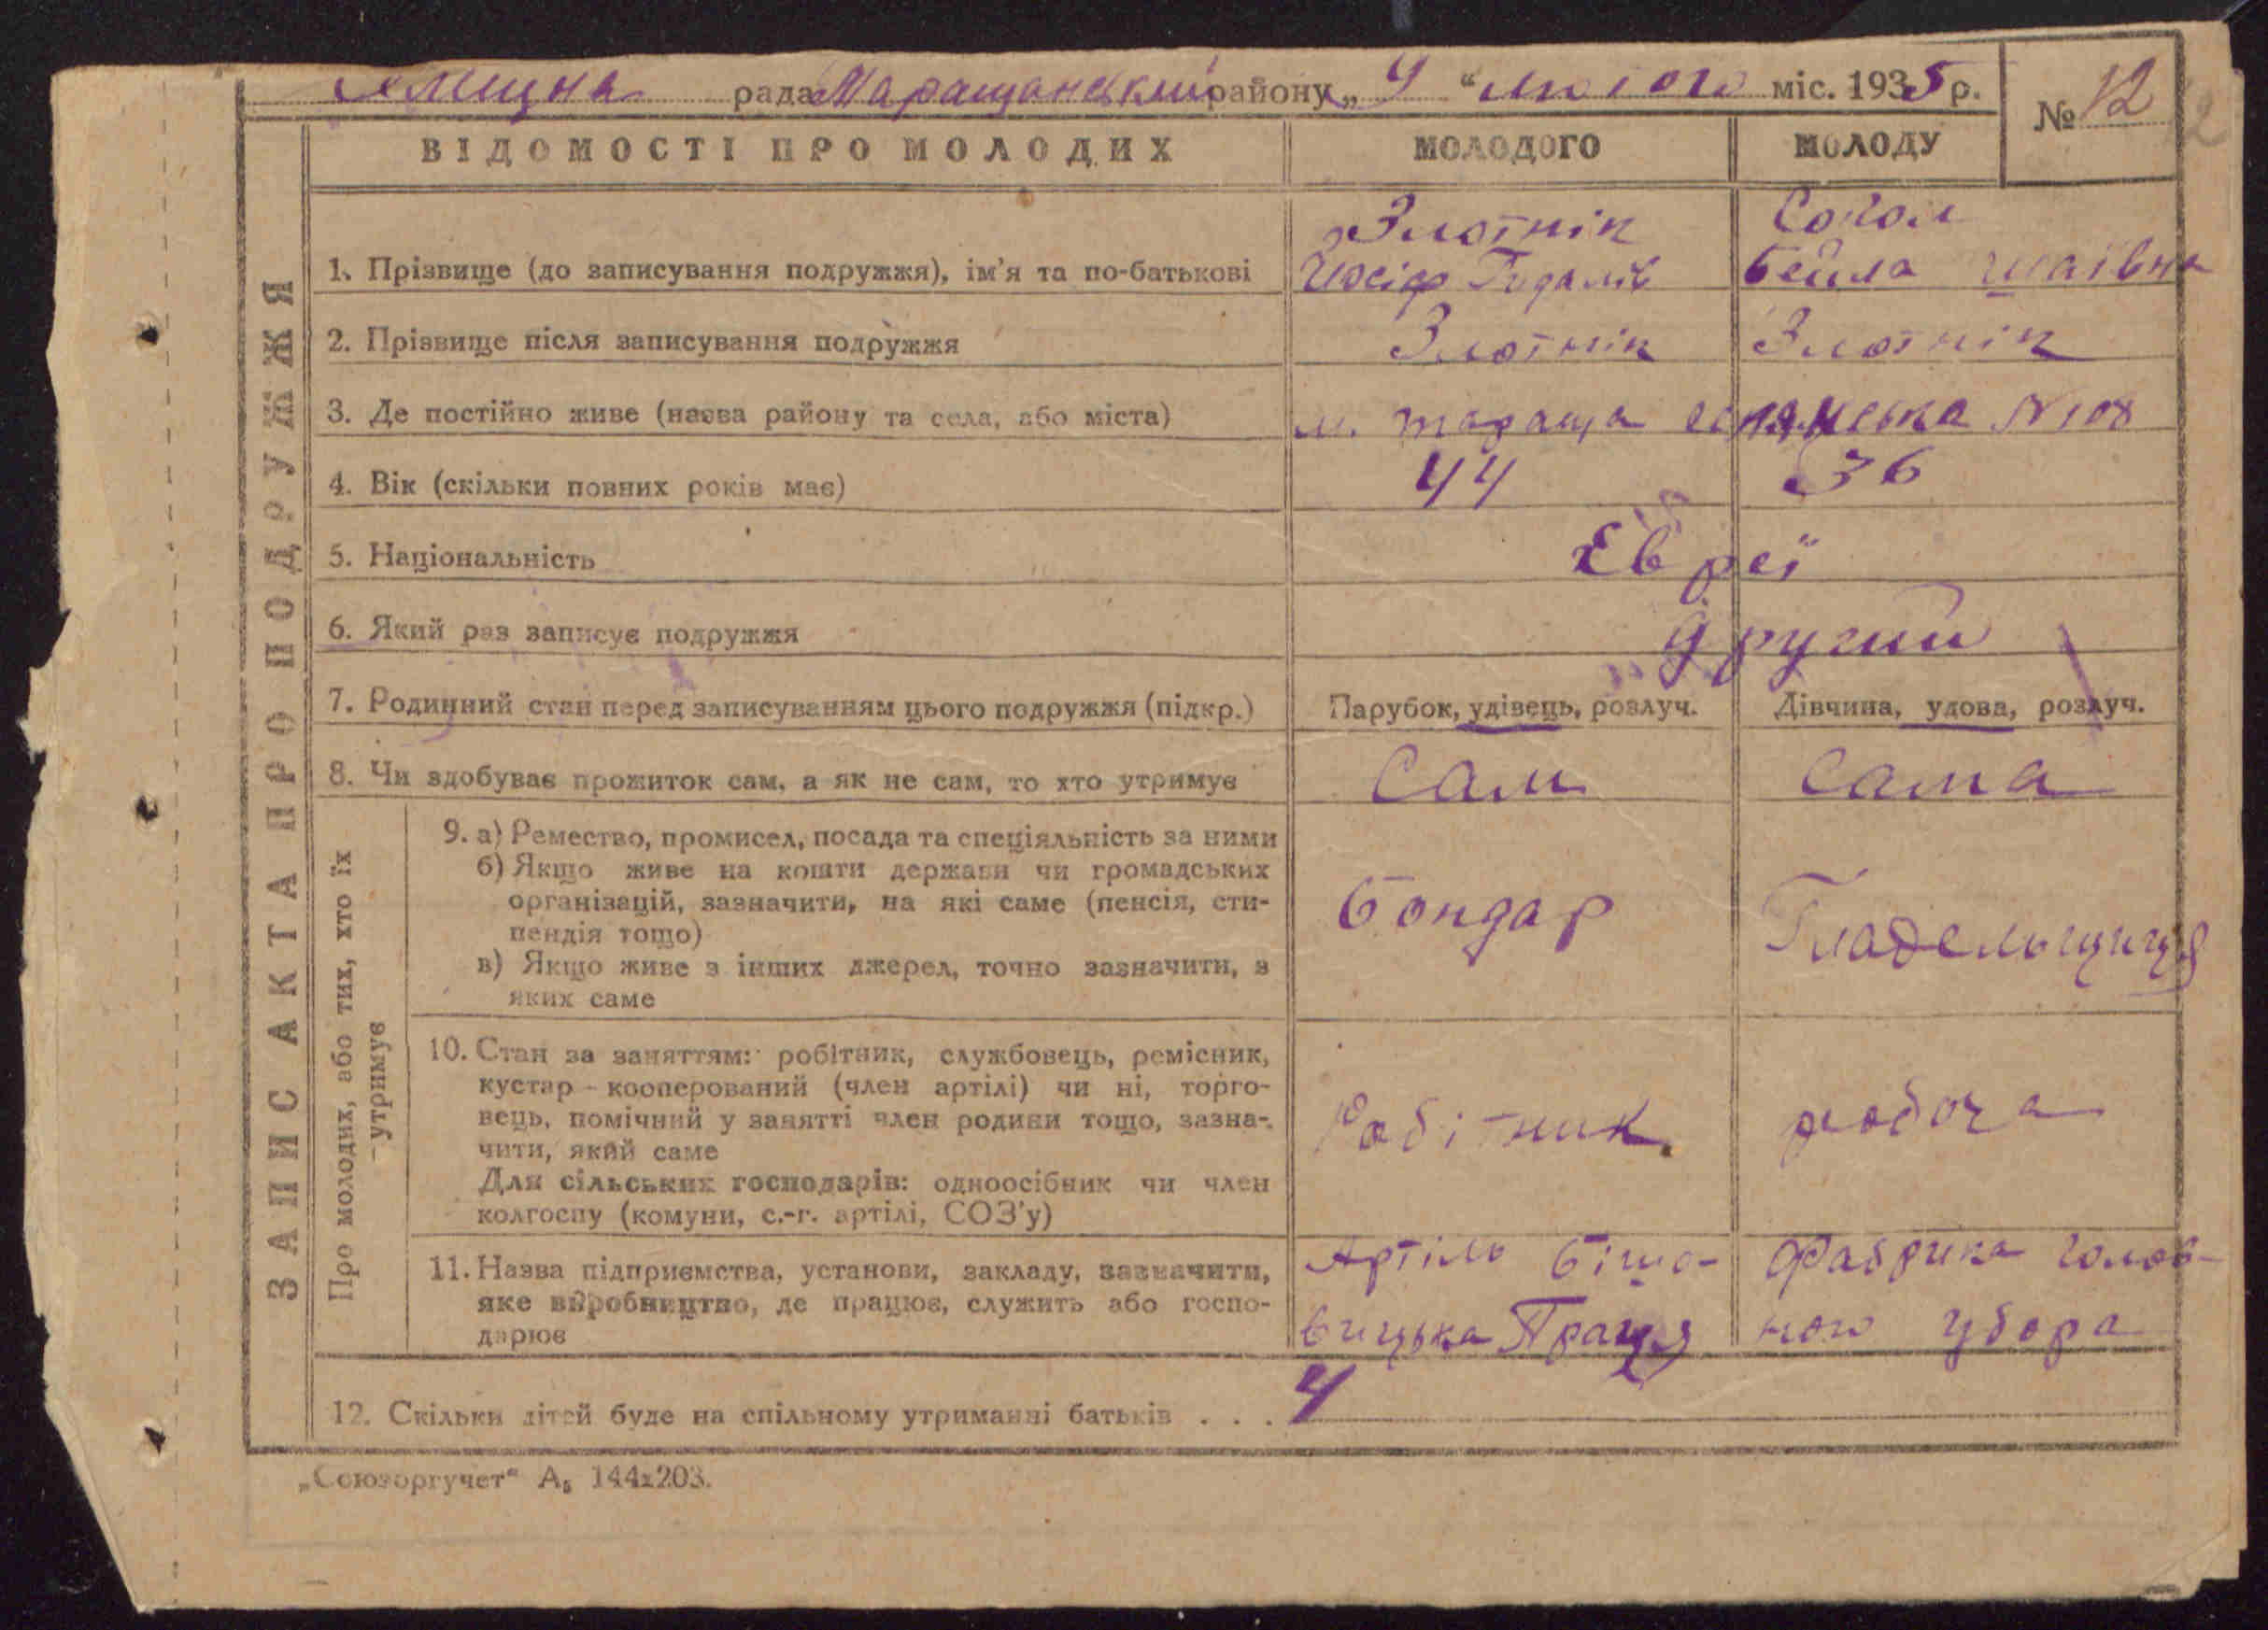 Міщна рада Таращанський району „4“ лютого міс. 1935 р.
№ 12
ВІДОМОСТІ ПРО МОЛОДИХ МОЛОДОГО МОЛОДУ
Злотнік Сокол
1. Прізвище (до записування подружжя), ім'я та по-батькові Йосіф Гидалів Бейла Шаївна
2. Прізвище після записування подружжя Злотнік Злотнік
3. Де постійно живе (назва району та села, або міста) м. Тараща №108
4. Вік (скільки повних років має) 44 36
5. Національність Євреї
6. Який раз записує подружжя другий
7. Родинний стан перед записуванням цього подружжя (підкр.) Парубок, удівець, розлуч. Дівчина, удова, розлуч.
8. Чи здобуває прожиток сам, а як не сам, то хто утримує Сам Сама
ЗАПИС АКТА ПРО ПОДРУЖЖЯ
Про молодих, або тих, хто їх
– утримує
9. а) Ремество, промисел, посада та спеціяльність за ними
б) Якщо живе на кошти держави чи громадських
організацій, зазначити, на які саме (пенсія, сти-
пендія тощо)
в) Якщо живе з інших джерел, точно зазначити, з
яких саме
Бондар Гладельщиця
10. Стан за заняттям: робітник, службовець, ремісник,
кустар - кооперований (член артілі) чи ні, торго-
вець, помічний у занятті член родини тощо, зазна-
чити, який саме
Для сільських господарів: одноосібник чи член
колгоспу (комуни, с.-г. артілі, СОЗ'у)
Робітник робоча
11. Назва підприємства, установи, закладу, зазначити,
яке виробництво, де працює, служить або госпо-
дарює
Артіль Більшо-
вицька Праця
Фабрика голов-
ного убора
12. Скільки дітей буде на спільному утриманні батьків . . . 4
„Союзоргучет“ А₅ 144x203.